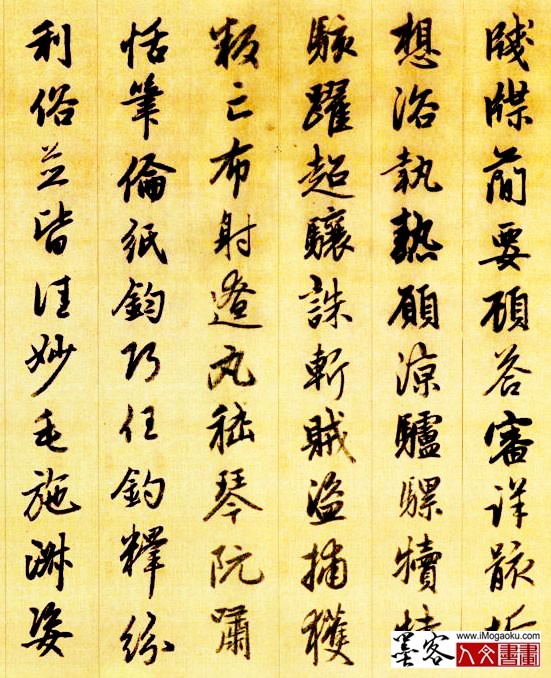 牋牒簡要顧答審詳骸垢
想浴執熱願涼驢騾犢特
駭躍超驤誅斬賊盜捕獲
叛亡布射遼丸嵇琴阮嘯
恬筆倫紙鈞巧任釣釋紛
利俗並皆佳妙毛施淑姿
墨客
www.iMogaoku.com
人文書畫